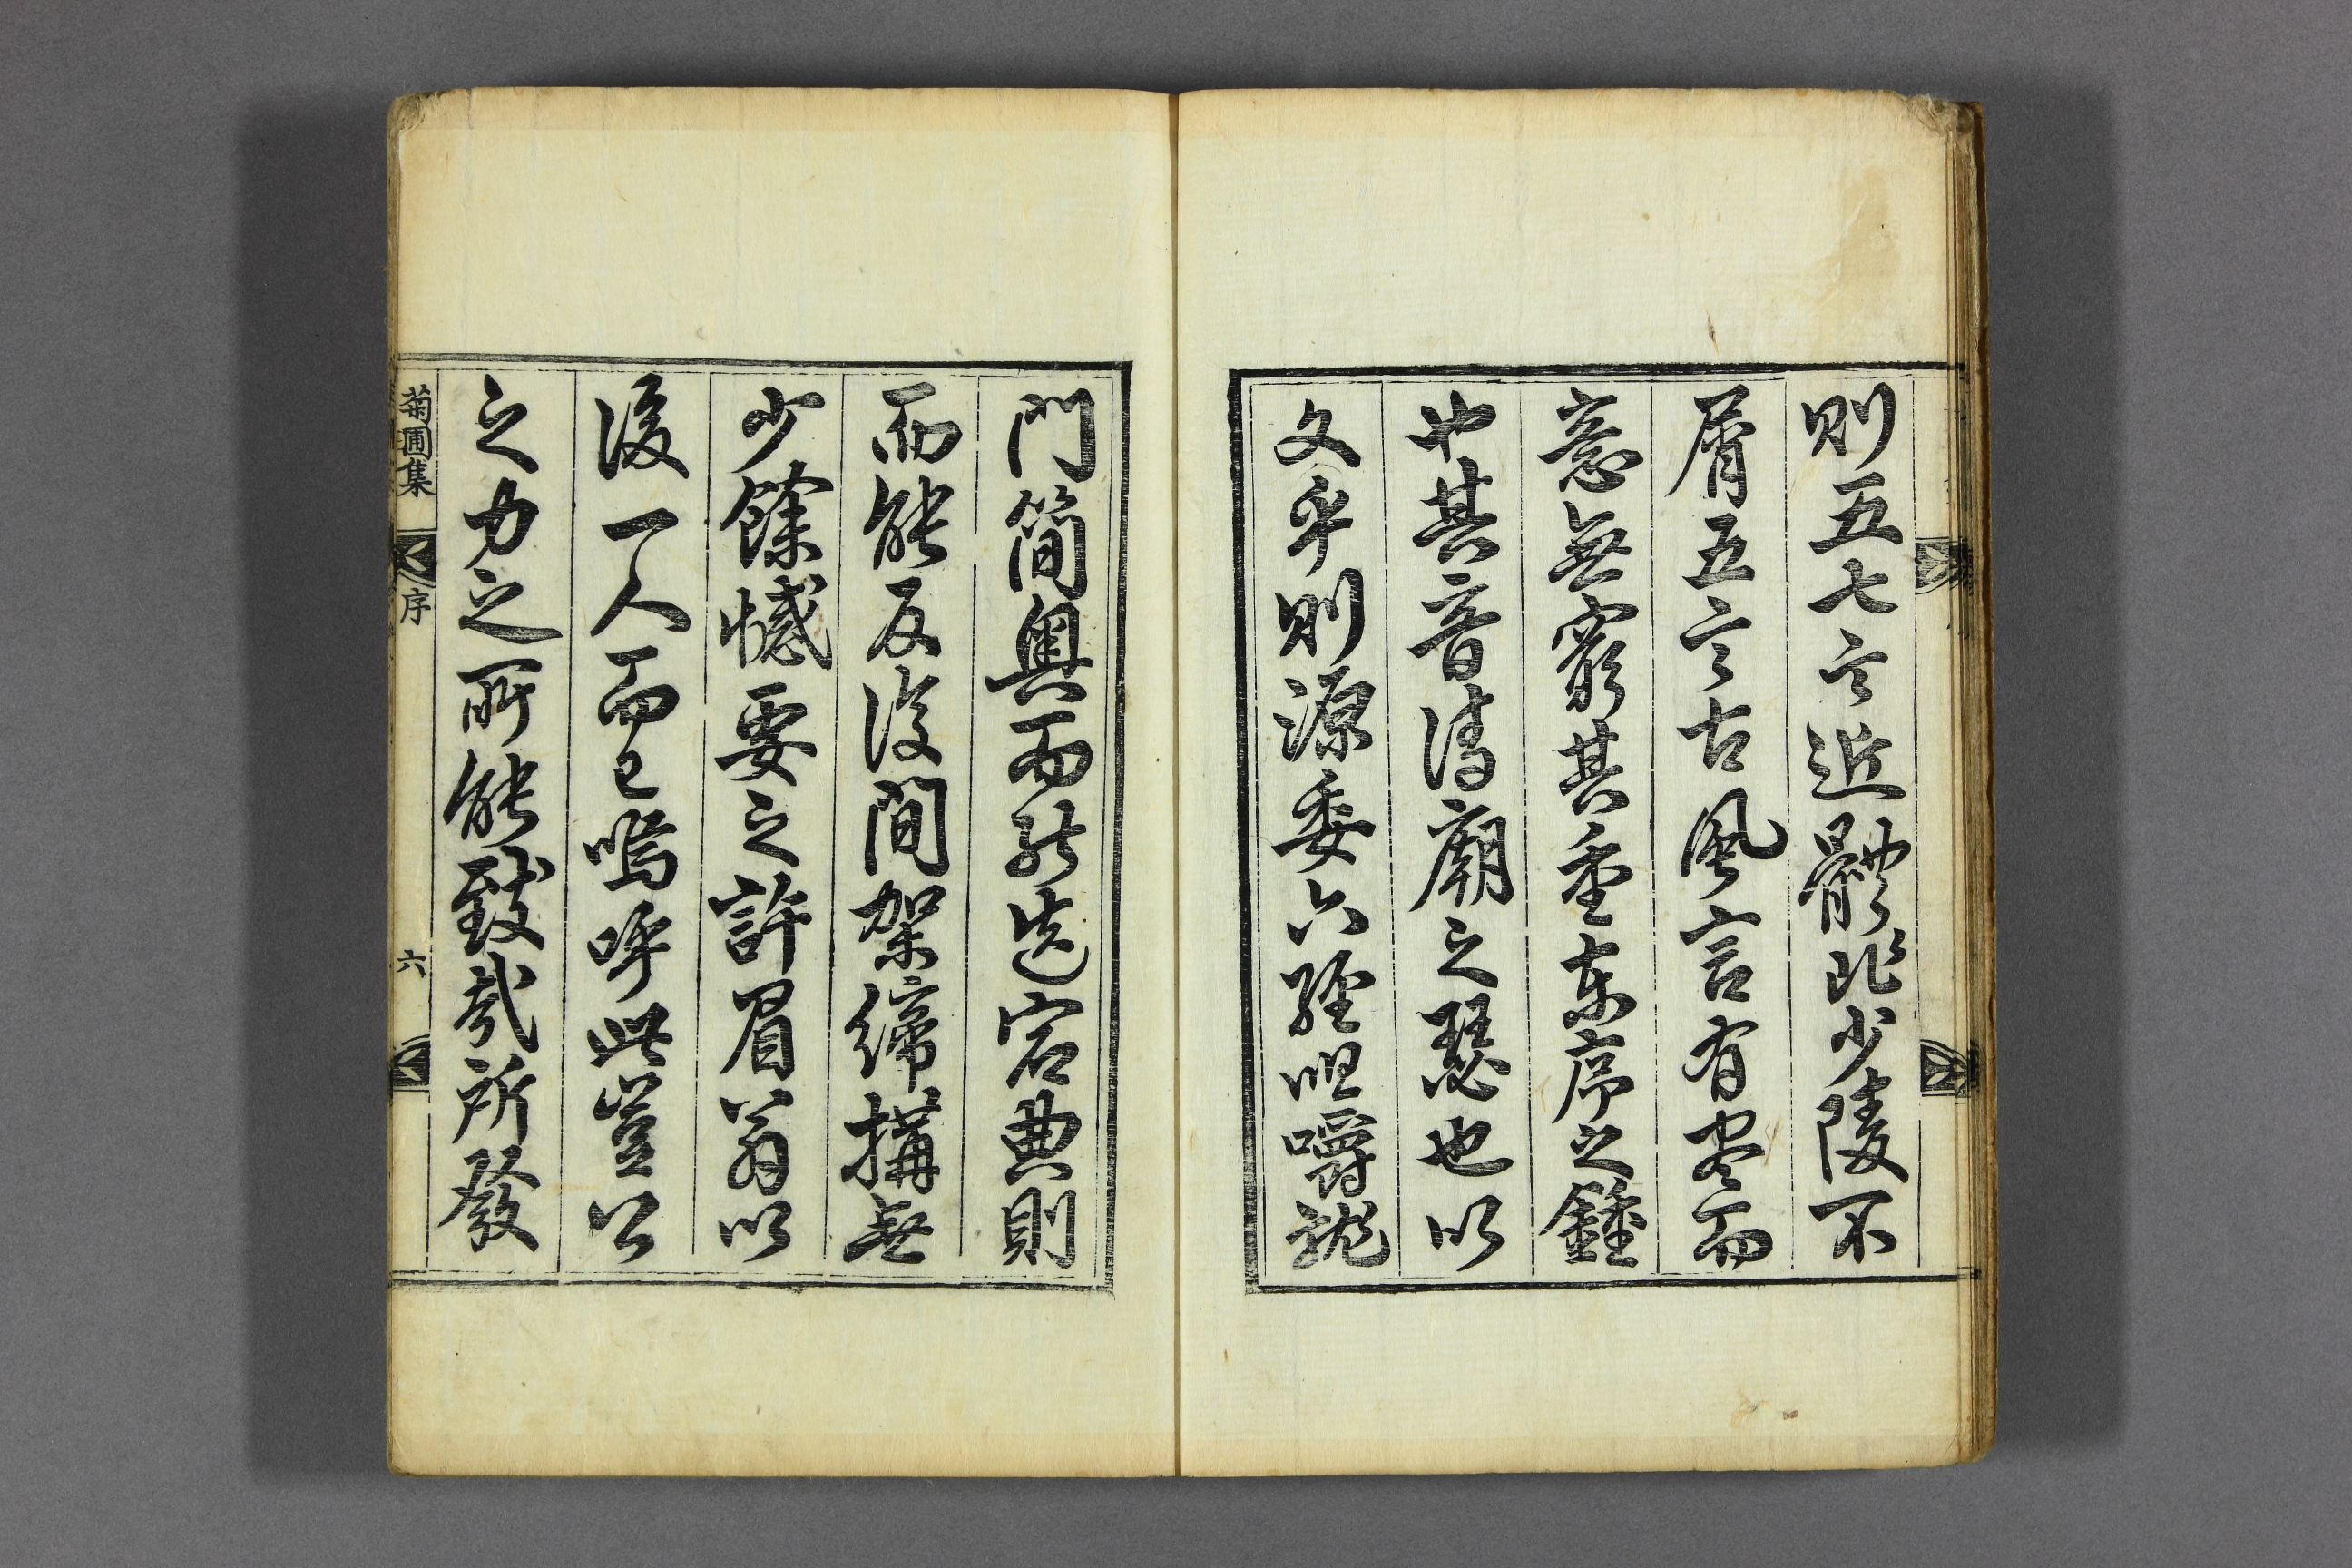 則五七言近體非少陵不
屑五言古風言有盡而
意無窮其垂東序之鍾
也其音清廟之瑟也以
文乎則源委六經咀嚼龍
門簡奧而能造宕典則
而能反復間架締構無
少餘憾要之許眉翁以
後一人而已嗚呼此豈公
之力之所能致哉所發
菊圃集 序 六